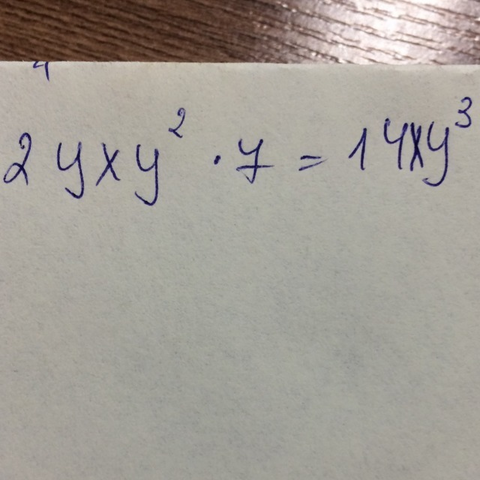 2yxy² · 7 = 14xy³